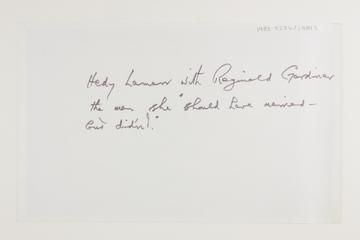 Hedy Lamarr with Reginald Gardiner
the man she "should have married –
but didn't!"